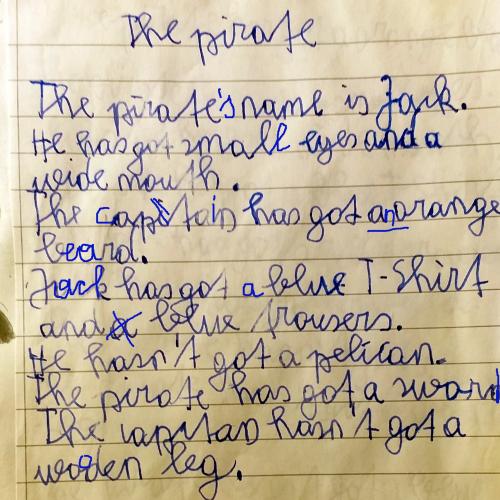 The pirate
The pirate's name is Jack.
He has got small eyes and a
wide mouth.
The captain has got an orange
beard.
Jack has got a blue T-Shirt
and blue trousers.
He hasn't got a pelican.
The pirate has got a sword
The capitan hasn't got a
wooden leg.